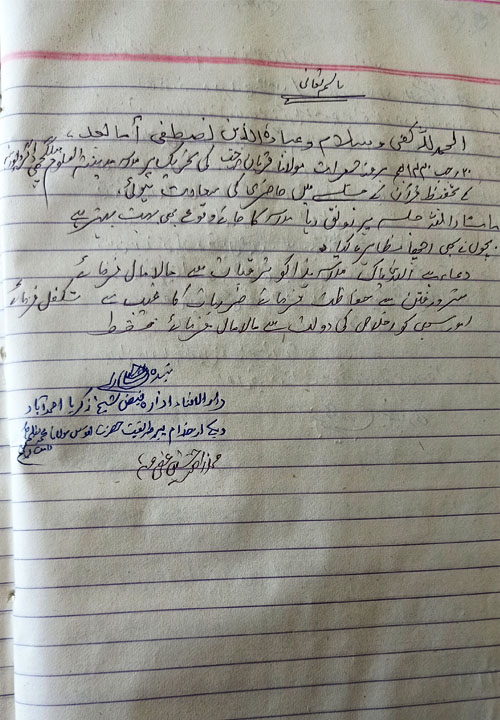 باسمہ تعالیٰ
الحمد للہ وکفی وسلام علی عبادہ الذین اصطفی أما بعد،
بروز جمعرات مولانا قربان کی تحریک پر مدرسہ مدینۃ العلوم
کے تحفیظ قرآن کے جلسے میں حاضری کی سعادت ہوئی،
ماشاء اللہ جلسہ پر رونق رہا مدرسہ کا جائے وقوع بھی بہت بہتر ہے
بچوں نے بھی اچھا مظاہرہ کیا۔
دعاء ہے اللہ پاک مدرسہ ہذا کو ترقیات سے مالا مال فرمائے
شرور وفتن سے حفاظت فرمائے ضروریات کا غیب سے تکفل فرمائے
اور سبھی کو اخلاص کی دولت سے مالا مال فرمائے فقط
بندہ
دار الافتاء ادارہ فیض شیخ زکریا احمدآباد
ویکے از خدام پیر طریقت حضرت اقدس مولانا